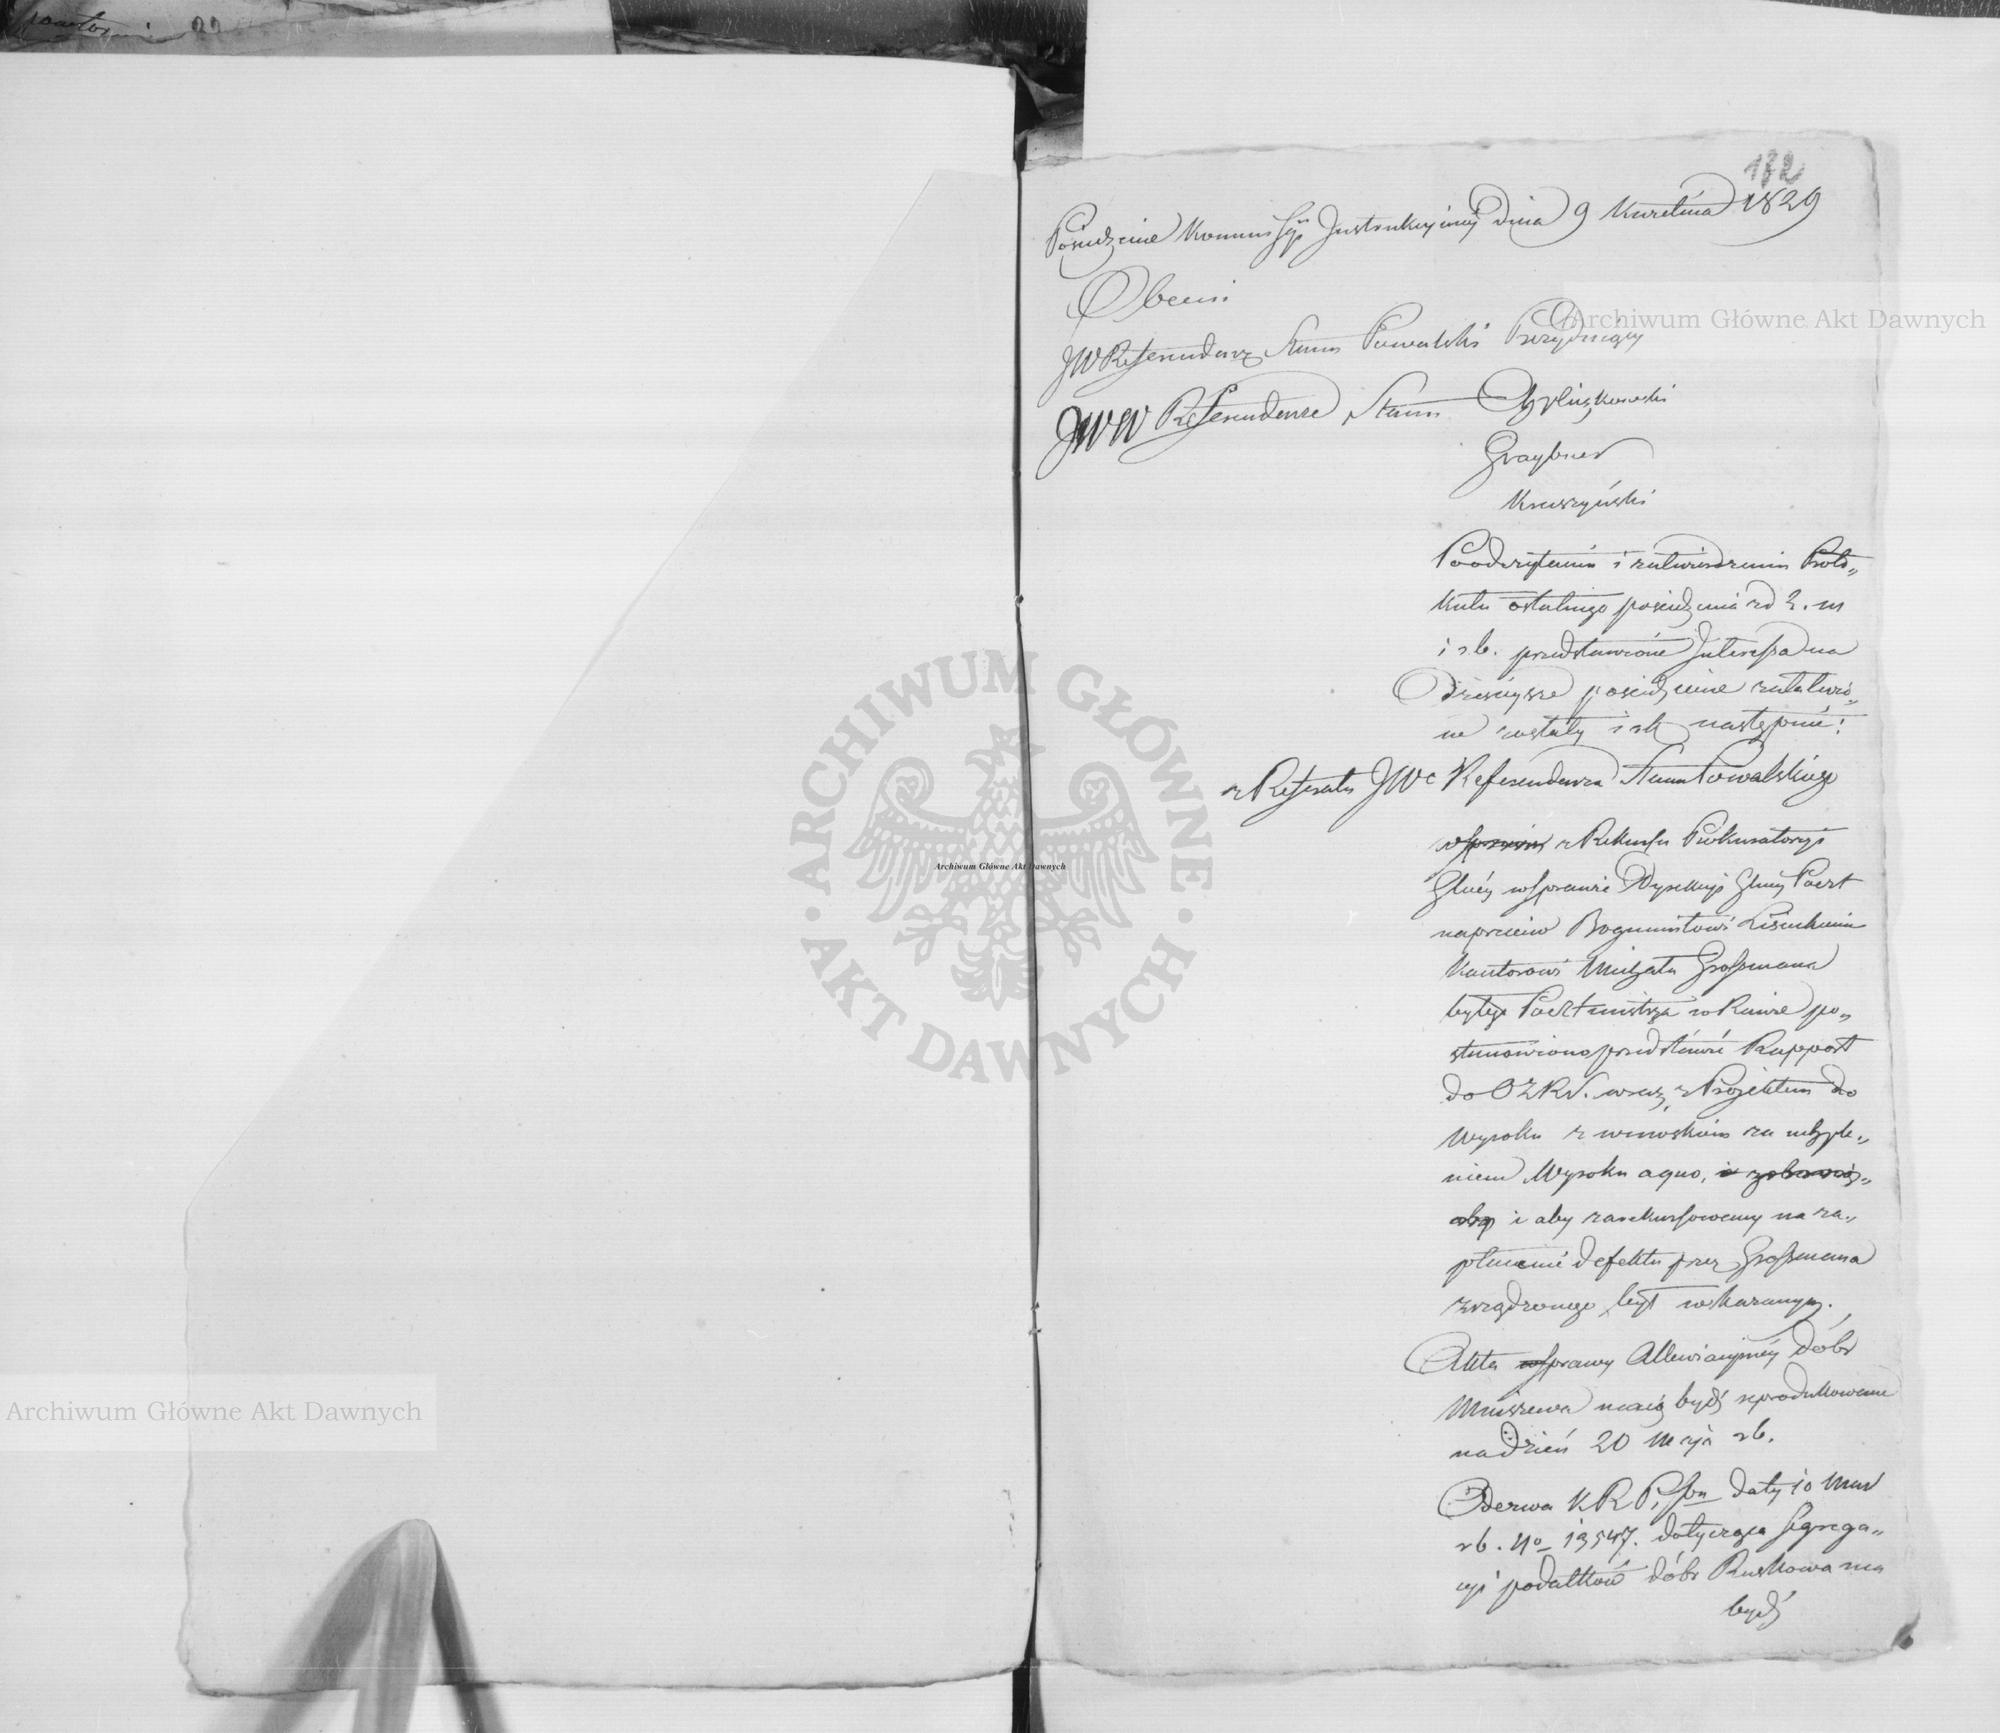 132
Posiedzenie Kommissyi Instrukcyinej Dnia 9 Kwietnia 1829
Obecni
JW Referendarz Stanu Powalski Prezydujący
JWW Referendarze Stanu
Graybner
Kruszyński
Po odczytaniu i zatwierdzeniu Proto„
kułu ostatniego posiedzenia z d 2. m
i r.b. przedstawione Interessa na
Dzisieysze posiedzenie załatwio„
ne zostały i tak następnie:
z Referatu JWo Referendarza Stanu Powalskiego
z Rekursu Prokuratoryi
Głney w sprawie Dyrekcyi Głney Poczt
naprzeciw Bogumiłowi
Kantorowi Michała Grossmana
byłego Pocztmistrza w Rawie po„
stanowiono przedstawić Rapport
do OZRN. wraz z Projektem do
Wyroku z wnioskiem za uchyle„
niem Wyroku a quo,
i aby zarekursowany na za„
płacenie defektu przez Grossmana
zrządzonego był wskazanym.
Akta sprawy Allewiacyjney dóbr
Mniszewa maią bydź reprodukowane
na dzień 20 Maja rb.
Odezwa K R P i Sbu daty 10 Mar
rb. No 13547. dotycząca segrega„
cyi podatków dóbr Ruskowa ma
bydź
Archiwum Główne Akt Dawnych
Archiwum Główne Akt Dawnych
Archiwum Główne Akt Dawnych
ARCHIWUM GŁÓWNE · AKT DAWNYCH ·